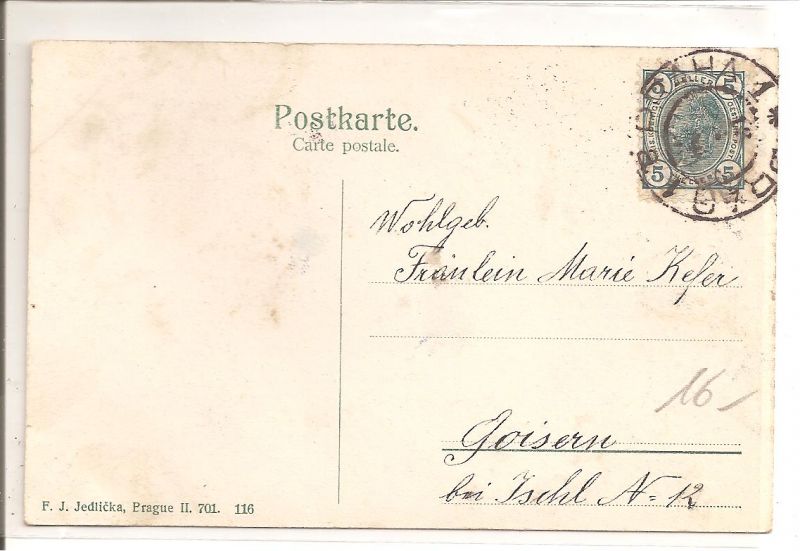 Postkarte.
Carte postale.
5 HELLER 5
5 5
PRAHA 1
Wohlgeb.
Fräulein Marie Kefer
16
Goisern
bei Ischl N= 12
F. J. Jedlička, Prague II. 701. 116